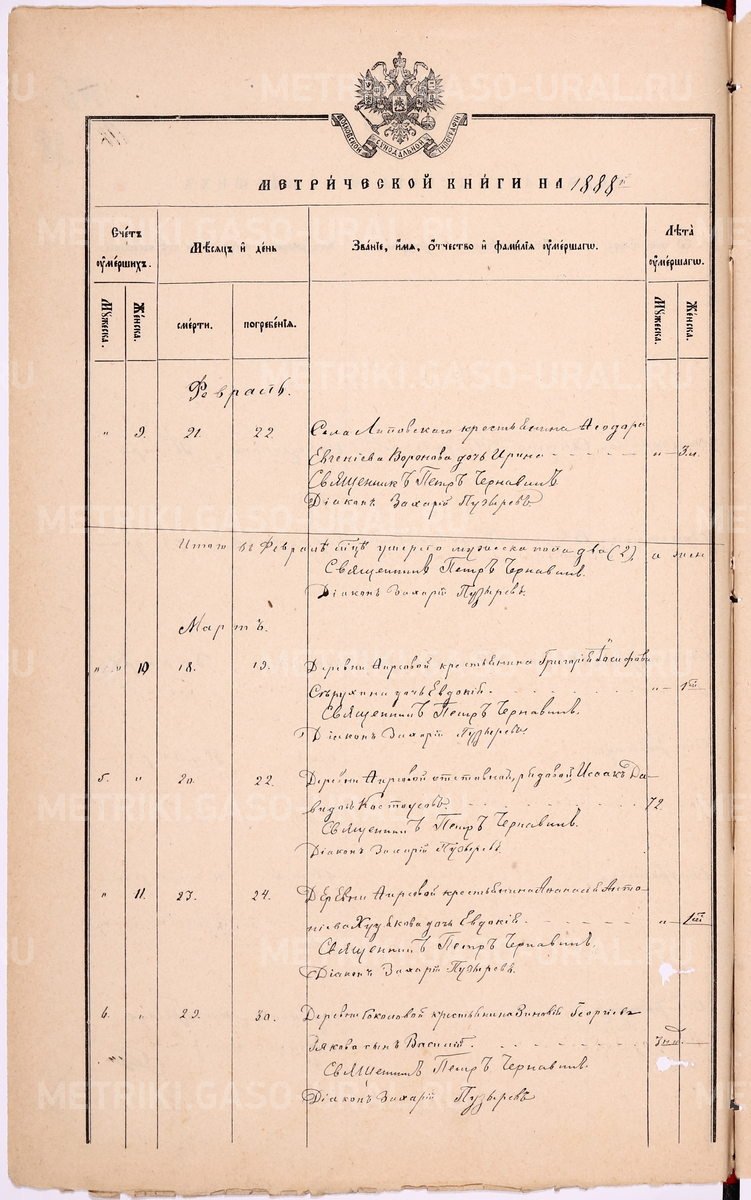 МОСКОВСКОЙ СѴНОДАЛЬНОЙ ТИПОГРАФІИ
МЕТРИ́ЧЕСКОЙ КНИ́ГИ НА 1888й
Сче́тъ ѹме́ршихъ.
Мѣсѧцъ и҆ де́нь
Зва́нїе, и҆́мѧ, ѻ҆́тчество и҆ фами́лїѧ ѹме́ршагѡ.
Лѣта̀ ѹме́ршагѡ.
Мꙋ́жеска. Же́нска. сме́рти. погребе́нїѧ. Мꙋ́жеска. Же́нска.
Февраль.
" 9. 21. 22. Села Липовскаго крестьянина Ѳеодора
Евгеніева Воронова дочь Ирина " 3 м.
Священникъ Петръ Чернавинъ
Діаконъ Захарій Пузыревъ
Итого въ Февралѣ мцѣ умерло мужеска пола два (2), а жен
Священникъ Петръ Чернавинъ.
Діаконъ Захарій Пузыревъ.
Мартъ.
10 18. 19. Деревни крестьянина Григорія Іосифова
дочь Евдокія. "
Священникъ Петръ Чернавинъ.
Діаконъ Захарій Пузыревъ
5. " 20. 22. Деревни отставной рядовой Исаакъ Да-
видовъ Костоусовъ. 72.
Священникъ Петръ Чернавинъ.
Діаконъ Захарій Пузыревъ.
" 11. 23. 24. Деревни крестьянина Анто-
ніева Худякова дочь Евдокія. "
Священникъ Петръ Чернавинъ.
Діаконъ Захарій Пузыревъ.
6. " 29. 30. Деревни Соколовой крестьянина Зиновія Георгіева
сынъ Василій. нд.
Священникъ Петръ Чернавинъ.
Діаконъ Захарій Пузыревъ
METRIKI.GASO-URAL.RU